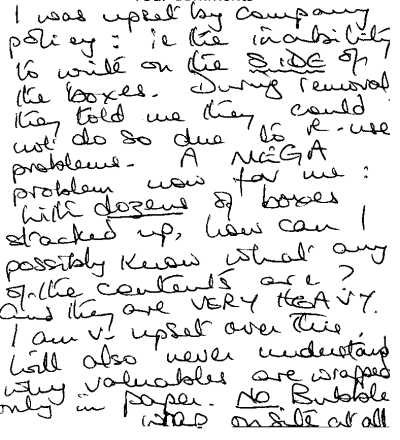 I was upset by company
policy : ie the inability
to write on the SIDE of
the boxes. During removal
they told me they could
not do so due to re-use
problems. A MEGA
problem now for me :
with dozens of boxes
stacked up, how can I
possibly know what any
of the contents are ?
And they are VERY HEAVY.
I am v. upset over this.
Will also never understand
why valuables are wrapped
only in paper. NO Bubble
wrap on site at all